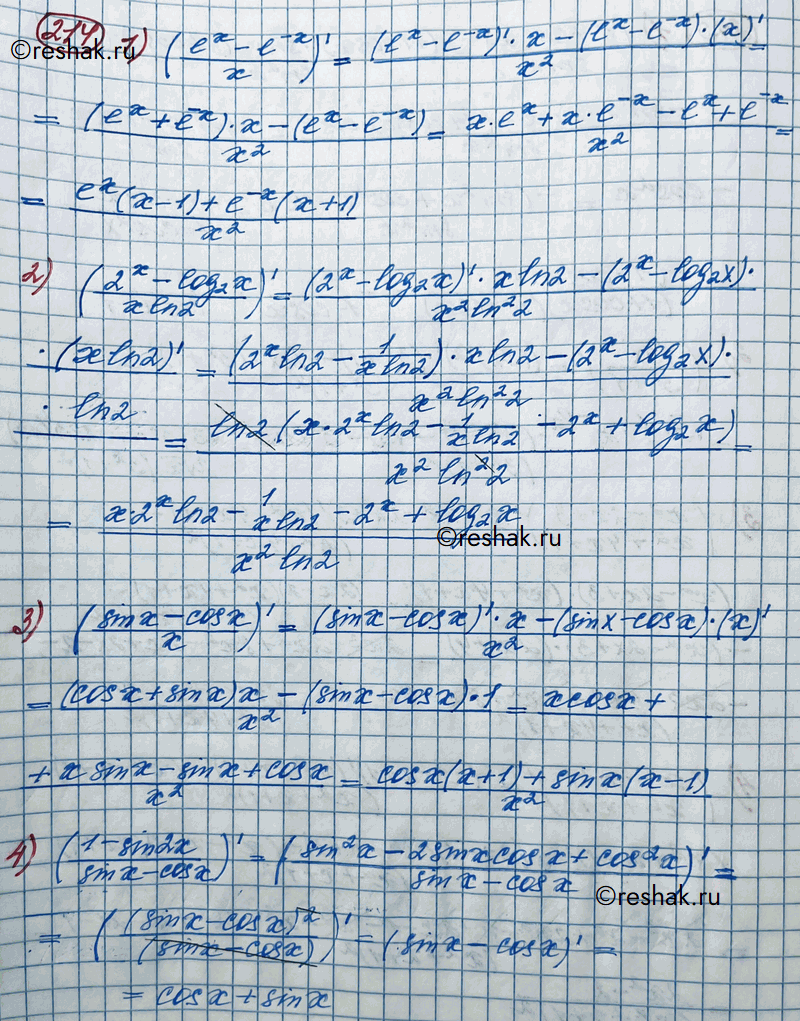 214. 1) ((e^x − e^−x)/x)' = ((e^x − e^−x)'·x − (e^x − e^−x)·(x)')/x² =
©reshak.ru
= ((e^x + e^−x)·x − (e^x − e^−x))/x² = (x·e^x + x·e^−x − e^x + e^−x)/x² =
= (e^x(x−1) + e^−x(x+1))/x²
2) ((2^x − log₂x)/(x ln2))' = ((2^x − log₂x)'·x ln2 − (2^x − log₂x)·
x² ln²2
·(x ln2)' = ((2^x ln2 − 1/(x ln2))·x ln2 − (2^x − log₂x)·
x² ln²2
· ln2 = ln2 (x·2^x ln2 − 1/(x ln2) − 2^x + log₂x)/(x² ln²2) =
= (x·2^x ln2 − 1/(x ln2) − 2^x + log₂x)/(x² ln2)
©reshak.ru
3) ((sinx − cosx)/x)' = ((sinx − cosx)'·x − (sinx − cosx)·(x)')/x²
= ((cosx + sinx)x − (sinx − cosx)·1)/x² = xcosx +
+ x sinx − sinx + cosx/x² = (cosx(x+1) + sinx(x−1))/x²
4) ((1 − sin2x)/(sinx − cosx))' = ((sin²x − 2sinxcosx + cos²x)/(sinx − cosx))' =
©reshak.ru
= ((sinx − cosx)²/(sinx − cosx))' = (sinx − cosx)' =
= cosx + sinx